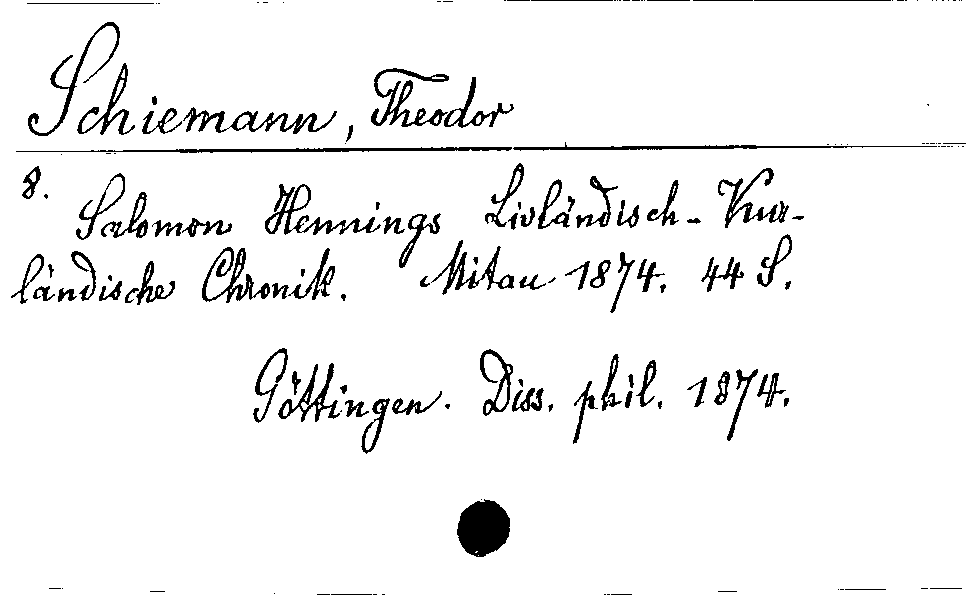 Schiemann, Theodor
8.
Salomon Hennings Livländisch-Kur-
ländische Chronik. Mitau 1874. 44 S.
Göttingen. Diss. phil. 1874.